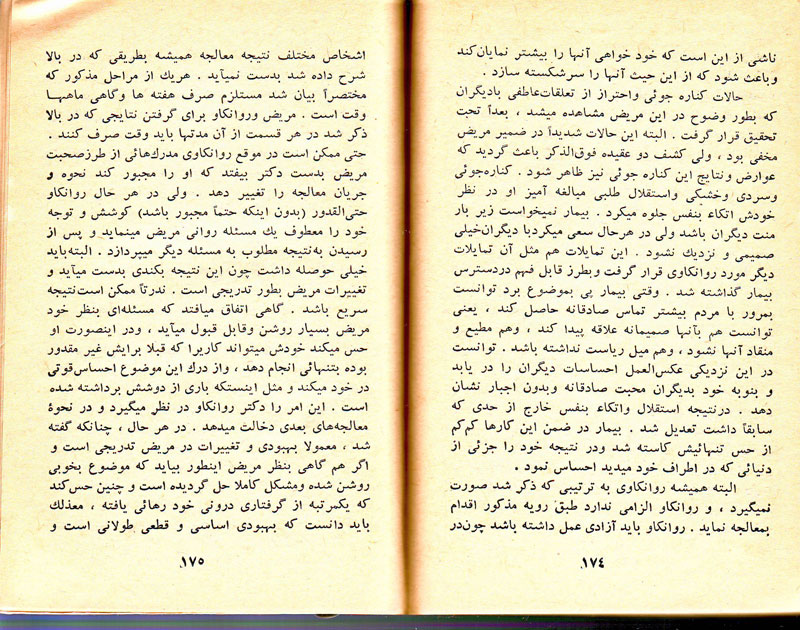 ناشی از این است که خود خواهی آنها را بیشتر نمایان‌کند
وباعث شود که از این حیث آنها را سرشکسته سازد .
حالات کناره جوئی واحتراز از تعلقات‌عاطفی بادیگران
که بطور وضوح در این مریض مشاهده میشد ، بعداً تحت
تحقیق قرار گرفت . البته این حالات شدیداً در ضمیر مریض
مخفی بود ، ولی کشف دو عقیده فوق‌الذکر باعث گردید که
عوارض ونتایج این کناره جوئی نیز ظاهر شود . کناره‌جوئی
وسردی وخشیکی واستقلال طلبی مبالغه آمیز او در نظر
خودش اتکاء بنفس جلوه میکرد . بیمار نمیخواست زیر بار
منت دیگران باشد ولی در هرحال سعی میکردبا دیگران‌خیلی
صمیمی و نزدیك نشود . این تمایلات هم مثل آن تمایلات
دیگر مورد روانکاوی قرار گرفت وبطرز قابل فهم دردسترس
بیمار گذاشته شد . وقتی بیمار پی بموضوع برد توانست
بمرور با مردم بیشتر تماس صادقانه حاصل کند ، یعنی
توانست هم‌بآنها صمیمانه علاقه پیدا کند ، وهم مطیع و
منقاد آنها نشود ، وهم میل ریاست نداشته باشد . توانست
در این نزدیکی عکس‌العمل احساسات دیگران را در یابد
و بنوبه خود بدیگران محبت صادقانه وبدون اجبار نشان
دهد . درنتیجه استقلال واتکاء بنفس خارج از حدی که
سابقاً داشت تعدیل شد . بیمار در ضمن این کارها کم‌کم
از حس تنهائیش کاسته شد ودر نتیجه خود را جزئی از
دنیائی که در اطراف خود میدید احساس نمود .
البته همیشه روانکاوی به ترتیبی که ذکر شد صورت
نمیگیرد ، و روانکاو الزامی ندارد طبق رویه مذکور اقدام
بمعالجه نماید . روانکاو باید آزادی عمل داشته باشد چون‌در
۱۷٤
اشخاص مختلف نتیجه معالجه همیشه بطریقی که در بالا
شرح داده شد بدست نمیآید . هریك از مراحل مذکور که
مختصراً بیان شد مستلزم صرف هفته ها وگاهی ماهها
وقت است . مریض وروانکاو برای گرفتن نتایجی که در بالا
ذکر شد در هر قسمت از آن مدتها باید وقت صرف کنند .
حتی ممکن است در موقع روانکاوی مدرك‌هائی از طرزصحبت
مریض بدست دکتر بیفتد که او را مجبور کند نحوه و
جریان معالجه را تغییر دهد . ولی در هر حال روانکاو
حتی‌القدور (بدون اینکه حتمآ مجبور باشد) کوشش و توجه
خود را معطوف یك مسئله روانی مریض مینماید و پس از
رسیدن به‌نتیجه مطلوب به مسئله دیگر میپردازد . البته‌باید
خیلی حوصله داشت چون این نتیجه بکندی بدست میآید و
تغییرات مریض بطور تدریجی است . ندرتآ ممکن است‌نتیجه
سریع باشد . گاهی اتفاق میافتد که مسئله‌ای بنظر خود
مریض بسیار روشن وقابل قبول میآید ، ودر اینصورت او
حس میکند خودش میتواند کاریرا که قبلا برایش غیر مقدور
بوده بتنهائی انجام دهد ، واز درك این موضوع احساس‌قوتی
در خود میکند و مثل اینستکه باری از دوشش برداشته شده
است . این امر را دکتر روانکاو در نظر میگیرد و در نحوۀ
معالجه‌های بعدی دخالت میدهد . در هر حال ، چنانکه گفته
شد ، معمولا بهبودی و تغییرات در مریض تدریجی است و
اگر هم گاهی بنظر مریض اینطور بیاید که موضوع بخوبی
روشن شده ومشکل کاملا حل گردیده است و چنین حس‌کند
که یکمرتبه از گرفتاری درونی خود رهائی یافته ، معذلك
باید دانست که بهبودی اساسی و قطعی طولانی است و
۱۷۵